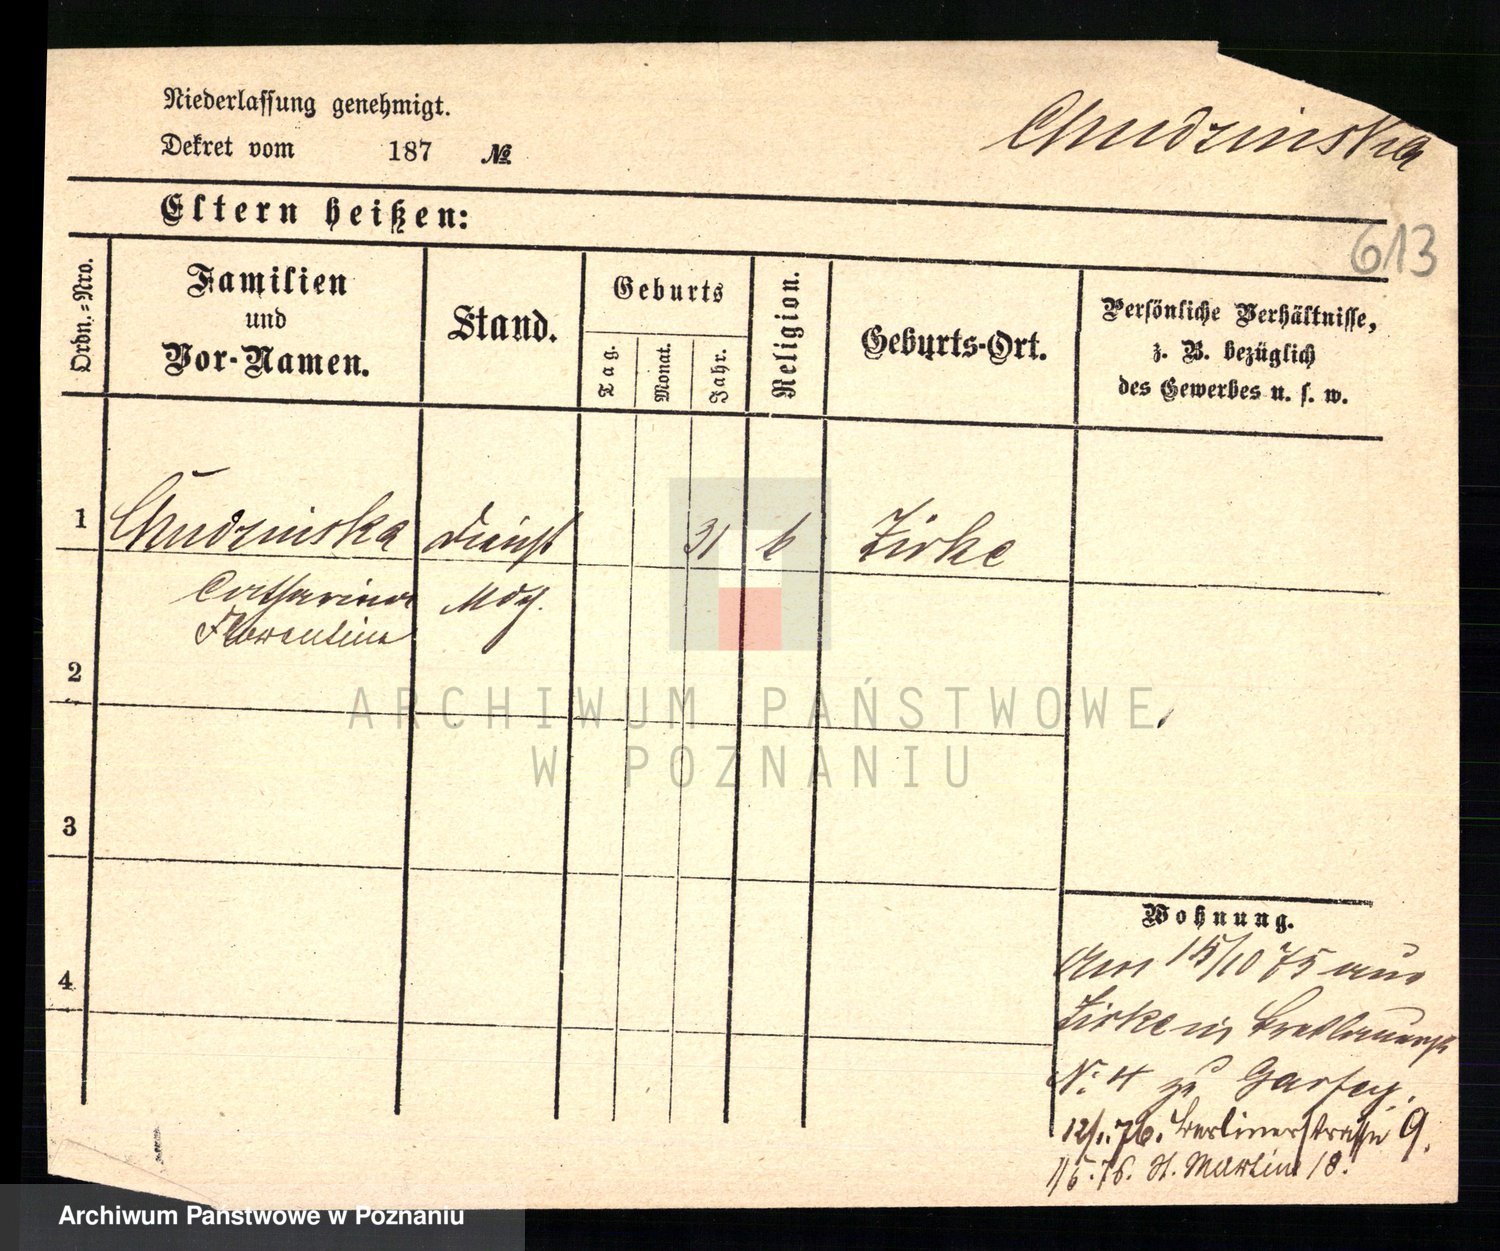 Niederlassung genehmigt.
Dekret vom 187 №
Chudzinska
Eltern heißen:
613
Ordn.=Nro.
Familien
und
Vor-Namen.
Stand.
Geburts
Tag.
Monat.
Jahr.
Religion.
Geburts-Ort.
Persönliche Verhältnisse,
z. B. bezüglich
des Gewerbes u. s. w.
1 Chudzinska Dienst 31 k Zirke
Catharina Mdg.
Florentine
2
3
4
Wohnung.
Am 15/10 75 aus
Zirke in Breslauerst
N: 4 zu
12/1. 76. Berlinerstrasse 9.
1/5. 76. St. Martin 18.
ARCHIWUM PAŃSTWOWE
W POZNANIU
Archiwum Państwowe w Poznaniu